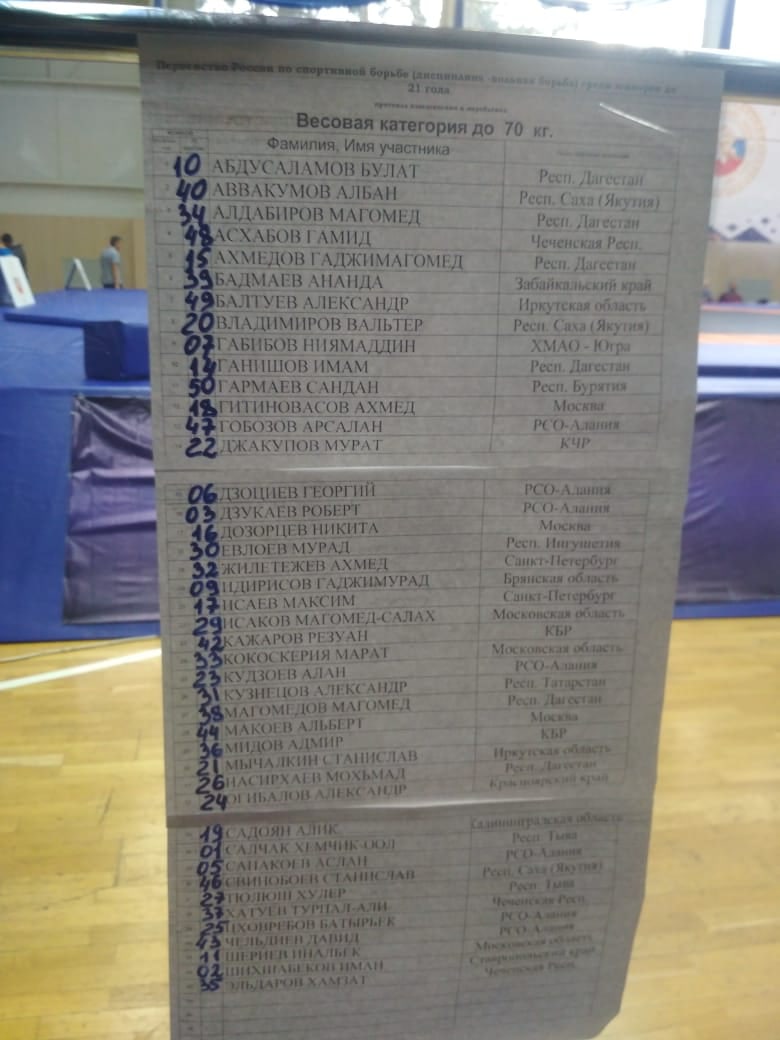 Первенство России по спортивной борьбе (дисциплина -вольная борьба) среди юниоров до
21 года
протокол взвешивания и жеребьевки
Весовая категория до 70 кг.
Фамилия, Имя участника
10 АБДУСАЛАМОВ БУЛАТ Респ. Дагестан
40 АВВАКУМОВ АЛБАН Респ. Саха (Якутия)
34 АЛДАБИРОВ МАГОМЕД Респ. Дагестан
48 АСХАБОВ ГАМИД Чеченская Респ.
15 АХМЕДОВ ГАДЖИМАГОМЕД Респ. Дагестан
39 БАДМАЕВ АНАНДА Забайкальский край
49 БАЛТУЕВ АЛЕКСАНДР Иркутская область
20 ВЛАДИМИРОВ ВАЛЬТЕР Респ. Саха (Якутия)
07 ГАБИБОВ НИЯМАДДИН ХМАО - Югра
14 ГАНИШОВ ИМАМ Респ. Дагестан
50 ГАРМАЕВ САНДАН Респ. Бурятия
18 ГИТИНОВАСОВ АХМЕД Москва
47 ГОБОЗОВ АРСАЛАН РСО-Алания
22 ДЖАКУПОВ МУРАТ КЧР
06 ДЗОЦИЕВ ГЕОРГИЙ РСО-Алания
03 ДЗУКАЕВ РОБЕРТ РСО-Алания
16 ДОЗОРЦЕВ НИКИТА Москва
30 ЕВЛОЕВ МУРАД Респ. Ингушетия
32 ЖИЛЕТЕЖЕВ АХМЕД Санкт-Петербург
09 ИДИРИСОВ ГАДЖИМУРАД Брянская область
17 ИСАЕВ МАКСИМ Санкт-Петербург
29 ИСАКОВ МАГОМЕД-САЛАХ Московская область
42 КАЖАРОВ РЕЗУАН КБР
33 КОКОСКЕРИЯ МАРАТ Московская область
23 КУДЗОЕВ АЛАН РСО-Алания
31 КУЗНЕЦОВ АЛЕКСАНДР Респ. Татарстан
38 МАГОМЕДОВ МАГОМЕД Респ. Дагестан
44 МАКОЕВ АЛЬБЕРТ Москва
36 МИДОВ АДМИР КБР
21 МЫЧАЛКИН СТАНИСЛАВ Иркутская область
26 НАСИРХАЕВ МОХЬМАД Респ. Дагестан
24 ОГИБАЛОВ АЛЕКСАНДР Красноярский край
19 САДОЯН АЛИК Калининградская область
01 САЛЧАК ХЕМЧИК-ООЛ Респ. Тыва
05 САНАКОЕВ АСЛАН РСО-Алания
46 СВИНОБОЕВ СТАНИСЛАВ Респ. Саха (Якутия)
27 ТЮЛЮШ ХУЛЕР Респ. Тыва
37 ХАТУЕВ ТУРПАЛ-АЛИ Чеченская Респ.
25 ЦХОВРЕБОВ БАТЫРБЕК РСО-Алания
43 ЧЕЛЬДИЕВ ДАВИД РСО-Алания
11 ШЕРИЕВ ИНАЛБЕК Московская область
02 ШИХШАБЕКОВ ИМАН Ставропольский край
35 ЭЛЬДАРОВ ХАМЗАТ Чеченская Респ.